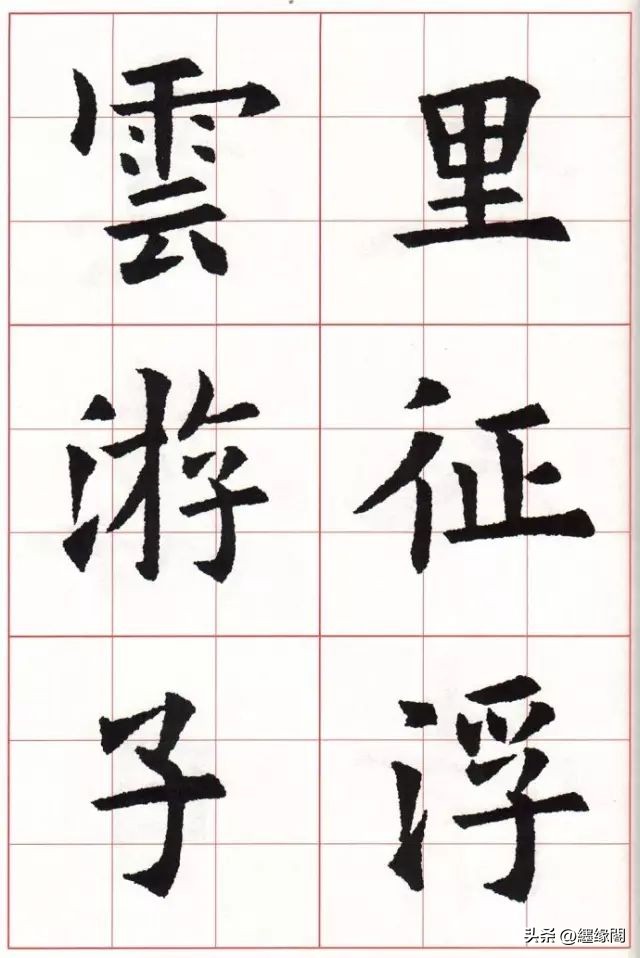 里征浮
雲游子
头条 @纆缘阁